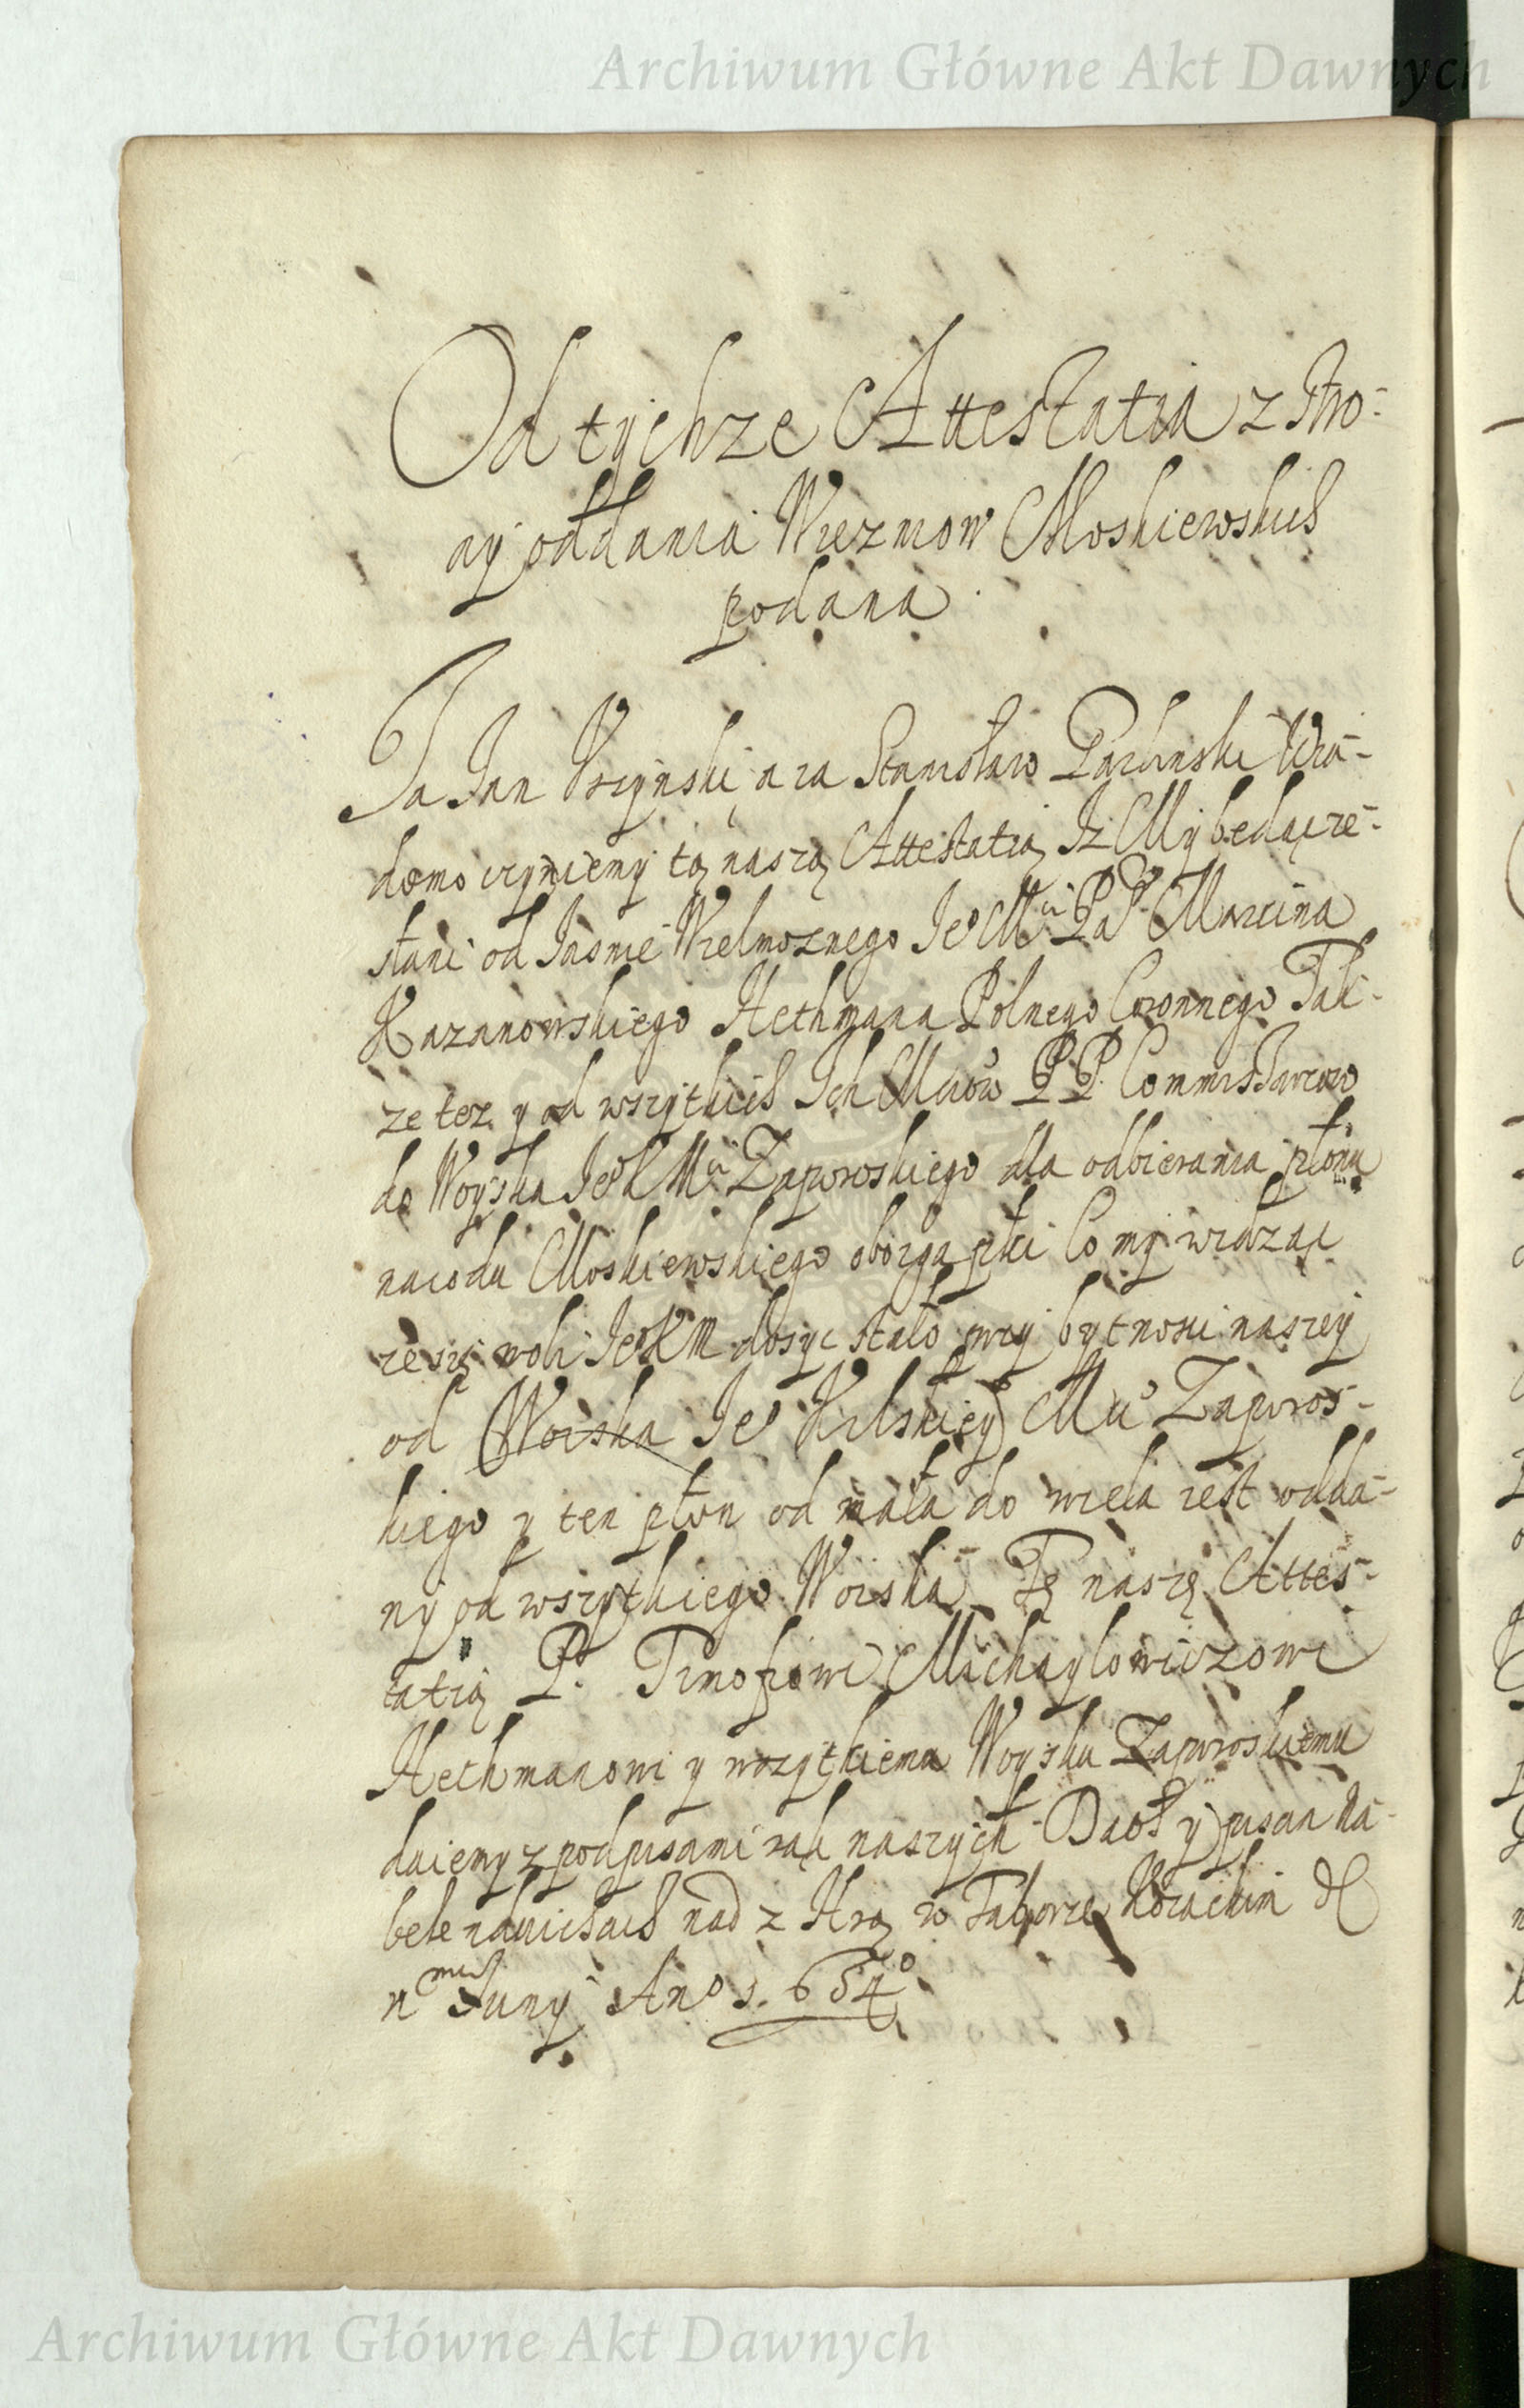 Archiwum Główne Akt Dawnych
Od tychze Attestatia z stro-
ny oddania Wiezniow Moskiewskich
podana
Ja Jan Rszynski a ia Stanisław Parinski Wia-
domo czyniemy tą naszą Attestatią Iż My będąc ze-
słani od Jasnie Wielmoznego Je⁰ Mci Pa Pa Marcina
Kazanowskiego Hethmana Polnego Coronnego Tak-
ze tez y od wszytkich Ich Mciow P P Commissarzow
do Woyska Je⁰ K Mci Zaporoskiego dla odbierania płonu
narodu Moskiewskiego oboyga płci Co my widząc
ze się woli Je⁰ K M dosyc stało przy bytnosci naszey
od Woiska Je⁰ Krlskiey Mci Zaporos-
kiego y ten płon od mała do wiela iest odda-
ny od wszytkiego Woiska Tę naszę Attes-
tatią P. Timofiowi Michayłowiczowi
Hethmanowi y wszytkiemu Woysku Zaporoskiemu
daiemy z podpisami rąk naszych Dat y pisan
nad z Hrą w Taborze Kozackim
Juny An⁰ 1.634⁰
Archiwum Główne Akt Dawnych